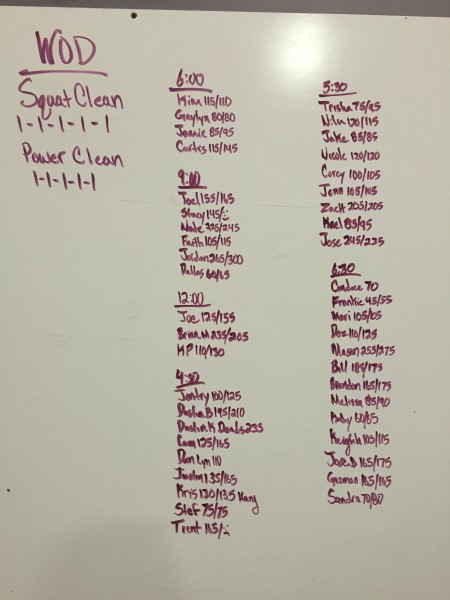 WOD
Squat Clean
1-1-1-1-1
Power Clean
1-1-1-1-1
6:00
Kim 115/110
Gaylyn 80/80
Jamie 85/95
Curtes 115/145
9:00
Joel 155/165
Stacy 145/:
Nate 225/245
Faith 105/115
Jordan 265/300
Dallas 60/65
12:00
Joe 125/155
Brian M 235/205
KP 110/130
4:30
Jentry 100/125
Dustin B 195/210
Dustin K Deads 235
Cam 125/165
Dan Lyn 110
135/165
Kris 130/135 Hang
Stef 75/75
Trent 165/:
5:30
Trisha 75/95
120/115
Jake 85/85
Nicole 120/120
Corey 100/105
Jenn 105/105
Zach 205/205
85/95
Jose 245/225
6:30
Candace 70
Frankie 45/55
Mari 105/
Dez 110/125
Mason 255/275
Bill 185/175
Brandon 165/175
Melissa 85/90
Ruby 60/65
Keighla 105/115
Jose B 165/175
Guzman 165/165
Sandra 70/80